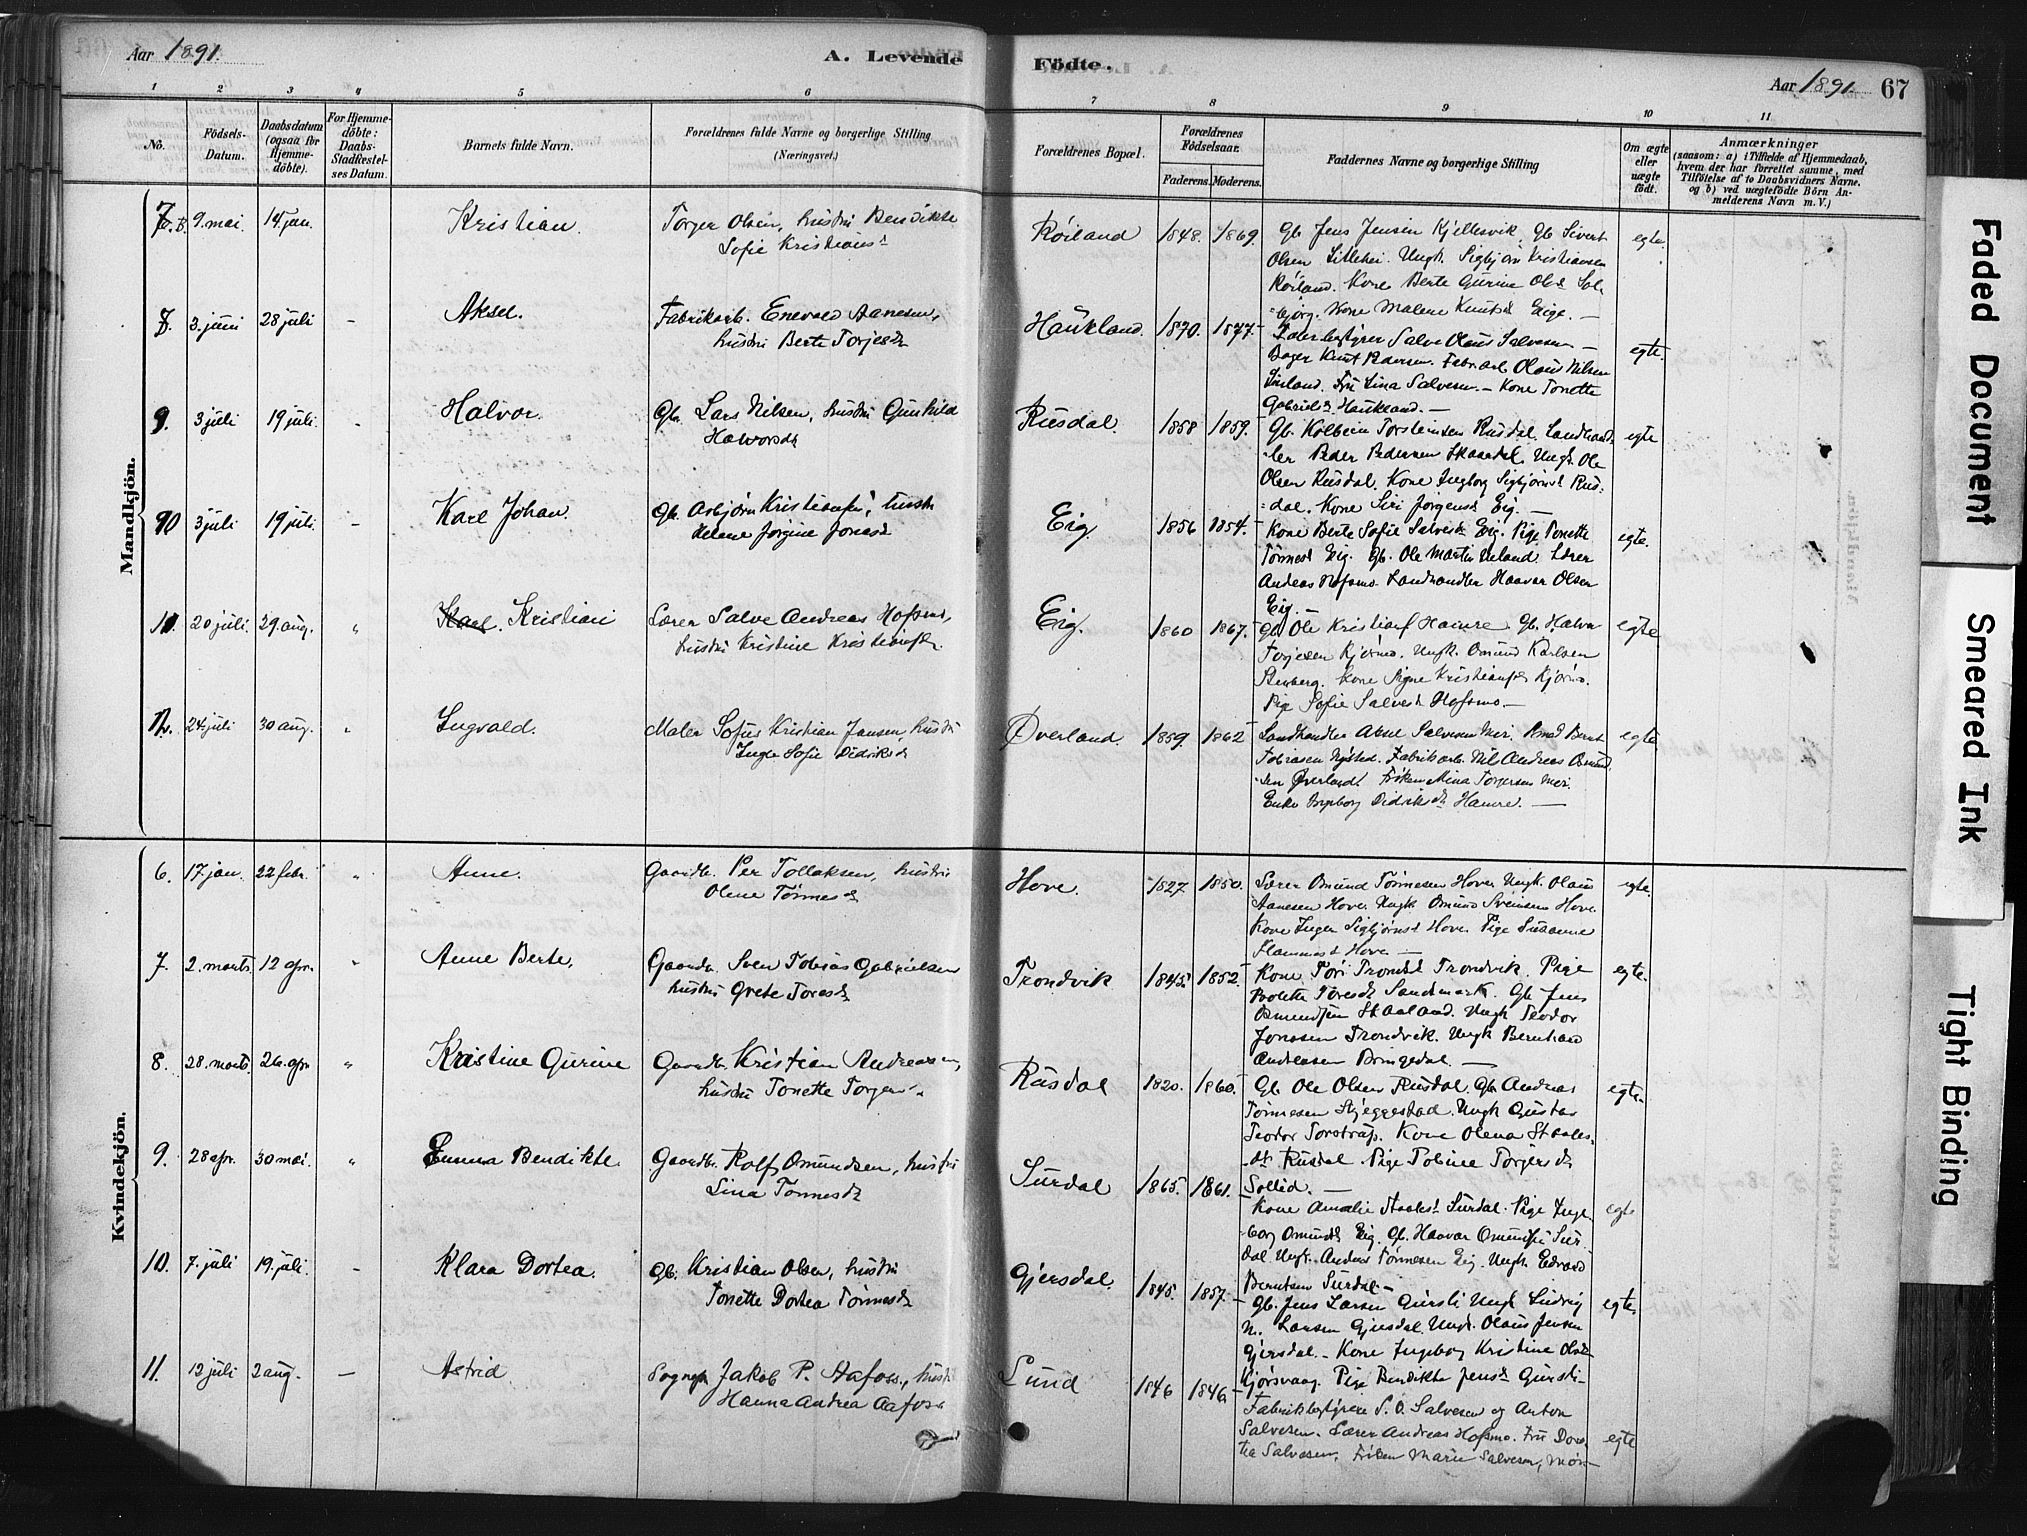 Aar 1891.
A. Levende
Födte.
Aar 1891. 67
1 2 3 4 5 6 7 8 9 10 11
No.
Födsels-
Datum.
Daabsdatum
(ogsaa for
Hjemme-
döbte).
For Hjemme-
döbte:
Daabs-
Stadfæstel-
ses Datum.
Barnets fulde Navn.
Forældrenes fulde Navne og borgerlige Stilling
(Næringsvei.)
Forældrenes Bopæl.
Forældrenes
Födselsaar.
Faderens. Moderens.
Faddernes Navne og borgerlige Stilling
Om ægte
eller
uægte
födt.
Anmærkninger
(saasom: a) i Tilfælde af Hjemmedaab,
hvem der har forrettet samme, med
Tilföielse af to Daabsvidners Navne.
og b) ved uægtefödte Börn An-
melderens Navn m. V.)
Mandkjön.
7. 9. mai. 14. jun. Kristian. Torger Olsen, hustru Bendikte
Sofie Kristians
Röiland 1848. 1869. Gb. Jens Jensen Kjellesvik. Gb. Sivert
Olsen Litlehei. Ungk. Sigbjörn Kristiansen
Röiland. Kone Berte Gurine Olsd. Sol-
-björg. Kone Malene Knutsd. Eige. —
egte.
8. 3. juni 28 juli – Aksel. Fabrikarb. Enevald Aanesen,
hustru Berte Torjesd.
Haukland. 1870. 1877. Salve Olaus Salvesen —
Knut Pedersen. Fabr.arb. Olaus Nilsen
Fru Lina Salvesen. — Kone Tonette
Gabrielsd. Haukland. —
egte.
9. 3 juli 19 juli. Halvor. Gb. Lars Nilsen, hustru Gunhild
Halvorsd.
Rusdal. 1858 1859. Gb. Kolbein Torsteinsen Rusdal. Landhand-
-ler Peder Pedersen Skaaedal. Ungk. Ole
Olsen Rusdal. Kone Ingborg Sigbjörnsd. Rus-
-dal. Kone Siri Jörgensd. Eig. —
egte
10 3 juli 19 juli. – Karl Johan. Gb. Asbjörn Kristiansen, hustru
Helene Jörgine Jonasd.
Eig 1856 1854. Kone Berte Sofie Salvesd. Eig. Pige Tonette
Tönnesd. Eig. Gb. Ole Martin Ueland. Lærer
Andreas Hofsmo. Landhandler Haavar Olsen
Eig. —
egte.
11. 20 juli. 29. aug. " Karl. Kristian Lærer Salve Andreas Hofsmo,
hustru Kristine Kristiansd.
Eig. 1860 1867. Gb. Ole Kristians. Hamre. Gb. Halvor
Torjesen Kjörmo. Ungk. Omund Karlsen
Stenberg. Kone Signe Kristiansd. Kjörmo.
Pige Sofie Salvesd. Hofsmo. —
egte
12. 24. juli 30 aug. " Ingvald. Maler Sofus Kristian Jansen, hustru
Inger Sofie Didriksd.
Överland. 1859. 1862 Landhandler Aksel Salvesen Moi. Bernt
Tobiasen Nysted. Fabrikarb. Nils Andreas Osmund-
-sen Överland. Fröken Mina Torgersen Moi.
Enke Ingeborg Didriksd. Hamre. —
egte
Kvindekjön.
6. 17. jan. 22 febr. " Anne. Gaardb. Per Tollaksen, hustru
Olene Tönnesd.
Hove. 1827 1850. Lærer Omund Tönnesen Hove. Ungk. Olaus
Aanesen Hove. Ungk. Omund Sveinsen Hove.
Kone Inger Sigbjörnsd. Hove. Pige Susanne
Hove —
egte.
7. 2. marts. 12 apr. " Anne Berte, Gaardb. Sven Tobias Gabrielsen
hustru Grete Toresd.
Trondvik 1845. 1852. Kone Tori Trondsd. Trondvik. Pige
Bolette Toresd. Sandsmark. Gb. Jens
Osmundsen Skaaland. Ungk Teodor
Jonassen Trondvik. Ungk Bernhard
Andreasen Bringedal. —
egte.
8. 28. marts. 26. apr. " Kristine Gurine Gaardb. Kristian Andreassen,
hustru Tonette Torgers
Rusdal 1820. 1860. Gb. Ole Olsen Rusdal. Gb. Andreas
Tönnesen Skjeggestad. Ungk Gustav
Teodor Torstrup. Kone Olena Staales-
-dt. Rusdal. Pige Tobine Torgersd.
Sollid. —
egte.
9. 28 apr. 30 mai. " Emma Bendikte Gaardb. Rolf Omundsen, hustru
Lina Tönnesd.
Surdal 1865. 1861. Kone Amalie Staalesd. Surdal. Pige Inge-
-borg Omundsd. Eig. Gb. Haavar Omundsen Sur-
dal. Ungk. Anders Tönnesen Eig. Ungk. Edvard
Berntsen Surdal —
egte
10. 7. juli 19. juli. – Klara Dortea. Gb. Kristian Olsen, hustru
Tonette Dortea Tönnesd.
Gjersdal. 1845. 1857. Gb. Jens Larsen Gursli. Ungk Ludvig
M. Larsen Gjersdal. Ungk. Olaus Jensen
Gjersdal. — Kone Ingeborg Kristine Olsd.
Pige Bendikte Jensd. Gursli —
egte.
11. 12 juli 2 aug. — Astrid Sognepr. Jakob P. Aafoss, hustru
Hanna Andrea Aafoss
Lund 1846 1846. Fabrikbestyrere S. O. Salvesen og Anton
Salvesen. Lærer Andreas Hofsmo. Fru Doro-
tea Salvesen, Fröken Marie Salvesen, Moi. —
egte
Faded Document
Smeared Ink
Tight Binding